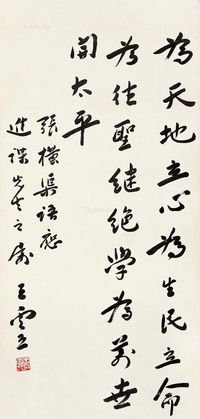 為天地立心為生民立命
為往聖继絕學為萬世
開太平
張橫渠語應
進謀先生之屬
王雲五